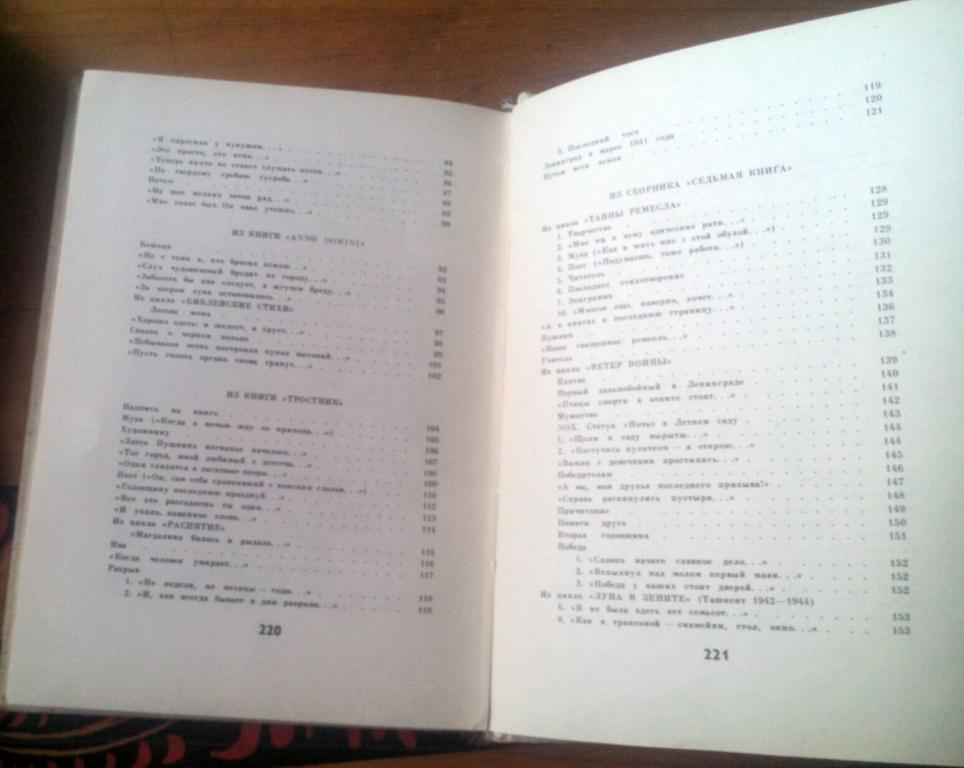 «Я спросила у кукушки. . .» 84
«Это просто, это ясно. . .» 85
«Теперь никто не станет слушать песен. . .» 86
«По твердому гребню сугроба. . .» 87
Ночью 88
«На шее мелких четок ряд. . .» 89
«Мне голос был. Он звал утешно. . .» 90
ИЗ КНИГИ «ANNO DOMINI»
Бежецк 92
«Не с теми я, кто бросил землю. . .» 93
«Слух чудовищный бродит по городу. . .» 94
«Заболеть бы как следует, в жгучем бреду. . .» 95
«За озером луна остановилась. . .» 96
Из цикла «БИБЛЕЙСКИЕ СТИХИ»
Лотова жена 97
«Хорошо здесь: и шелест, и хруст. . .» 98
Сказка о черном кольце 99
«Небывалая осень построила купол высокий. . .» 101
«Пусть голоса органа снова грянут. . .» 102
ИЗ КНИГИ «ТРОСТНИК»
Надпись на книге 104
Муза («Когда я ночью жду ее прихода. . .») 105
Художнику 106
«Здесь Пушкина изгнанье началось. . .» 107
«Тот город, мной любимый с детства. . .» 108
«Одни глядятся в ласковые взоры. . .» 109
Поэт («Он, сам себя сравнивший с конским глазом. . .») 110
«Годовщину последнюю празднуй. . .» 112
«Все это разгадаешь ты один. . .» 113
«И упало каменное слово. . .» 114
Из цикла «РАСПЯТИЕ»
«Магдалина билась и рыдала. . .» 115
Ива 116
«Когда человек умирает. . .» 117
Разрыв
1. «Не недели, не месяцы — годы. . .» 118
2. «И, как всегда бывает в дни разрыва. . .» 118
220
3. Последний тост 119
Ленинград в марте 1941 года 120
Путем всея земли 121
ИЗ СБОРНИКА «СЕДЬМАЯ КНИГА»
Из цикла «ТАЙНЫ РЕМЕСЛА»
1. Творчество 128
2. «Мне ни к чему одические рати. . .» 129
3. Муза («Как и жить мне с этой обузой. . .») 129
4. Поэт («Подумаешь, тоже работа. . .») 129
5. Читатель 130
6. Последнее стихотворение 131
7. Эпиграмма 132
10. «Многое еще, наверно, хочет. . .» 133
«А в книгах я последнюю страницу. . .» 134
Пушкин 136
«Наше священное ремесло. . .» 137
Учитель 138
Из цикла «ВЕТЕР ВОЙНЫ»
Клятва 139
Первый дальнобойный в Ленинграде 140
«Птицы смерти в зените стоят. . .» 141
Мужество 142
NOX. Статуя «Ночь» в Летнем саду 143
1. «Щели в саду вырыты. . .» 144
2. «Постучись кулачком — я открою. . .» 144
«Важно с девочками простились. . .» 145
Победителям 146
«А вы, мои друзья последнего призыва!» 147
«Справа раскинулись пустыри. . .» 148
Причитание 149
Памяти друга 150
Вторая годовщина 151
Победа
1. «Славно начато славное дело. . .» 152
2. «Вспыхнул над молом первый маяк. . .» 152
3. «Победа у наших стоит дверей. . .» 152
Из цикла «ЛУНА В ЗЕНИТЕ» (Ташкент 1942—1944)
6. «Я не была здесь лет семьсот. . .» 153
8. «Как в трапезной — скамейки, стол, окно. . .» 153
221